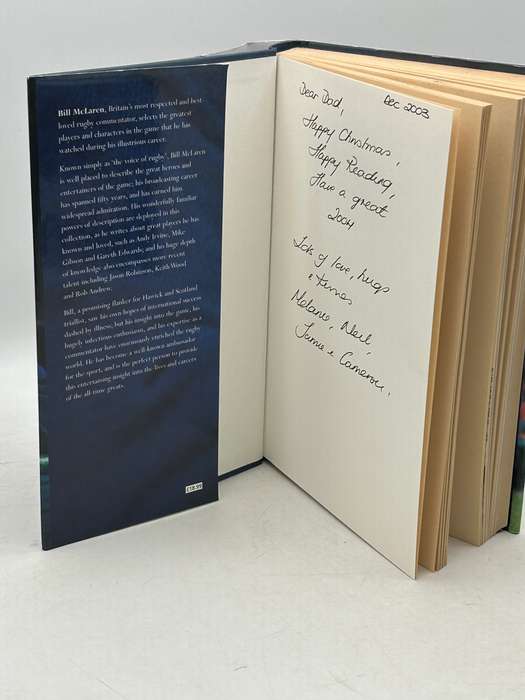 Bill McLaren, Britain's most respected and best-
loved rugby commentator, selects the greatest
players and characters in the game that he has
watched during his illustrious career.
Known simply as 'the voice of rugby', Bill McLaren
is well placed to describe the great heroes and
entertainers of the game; his broadcasting career
has spanned fifty years, and has earned him
widespread admiration. His wonderfully familiar
powers of description are deployed in this
collection, as he writes about great players he has
known and loved, such as Andy Irvine, Mike
Gibson and Gareth Edwards; and his huge depth
of knowledge also encompasses more recent
talent including Jason Robinson, Keith Wood
and Rob Andrew.
Bill, a promising flanker for Hawick and Scotland
triallist, saw his own hopes of international success
dashed by illness, but his insight into the game, his
hugely infectious enthusiasm, and his expertise as a
commentator have enormously enriched the rugby
world. He has become a well-known ambassador
for the sport, and is the perfect person to provide
this entertaining insight into the lives and careers
of the all-time greats.
£18.99
Dec 2003
Dear Dad,
Happy Christmas,
Happy Reading,
Have a great
2004
Lots of love, hugs
& kisses
Melanie, Neil,
Jamie & Cameron.